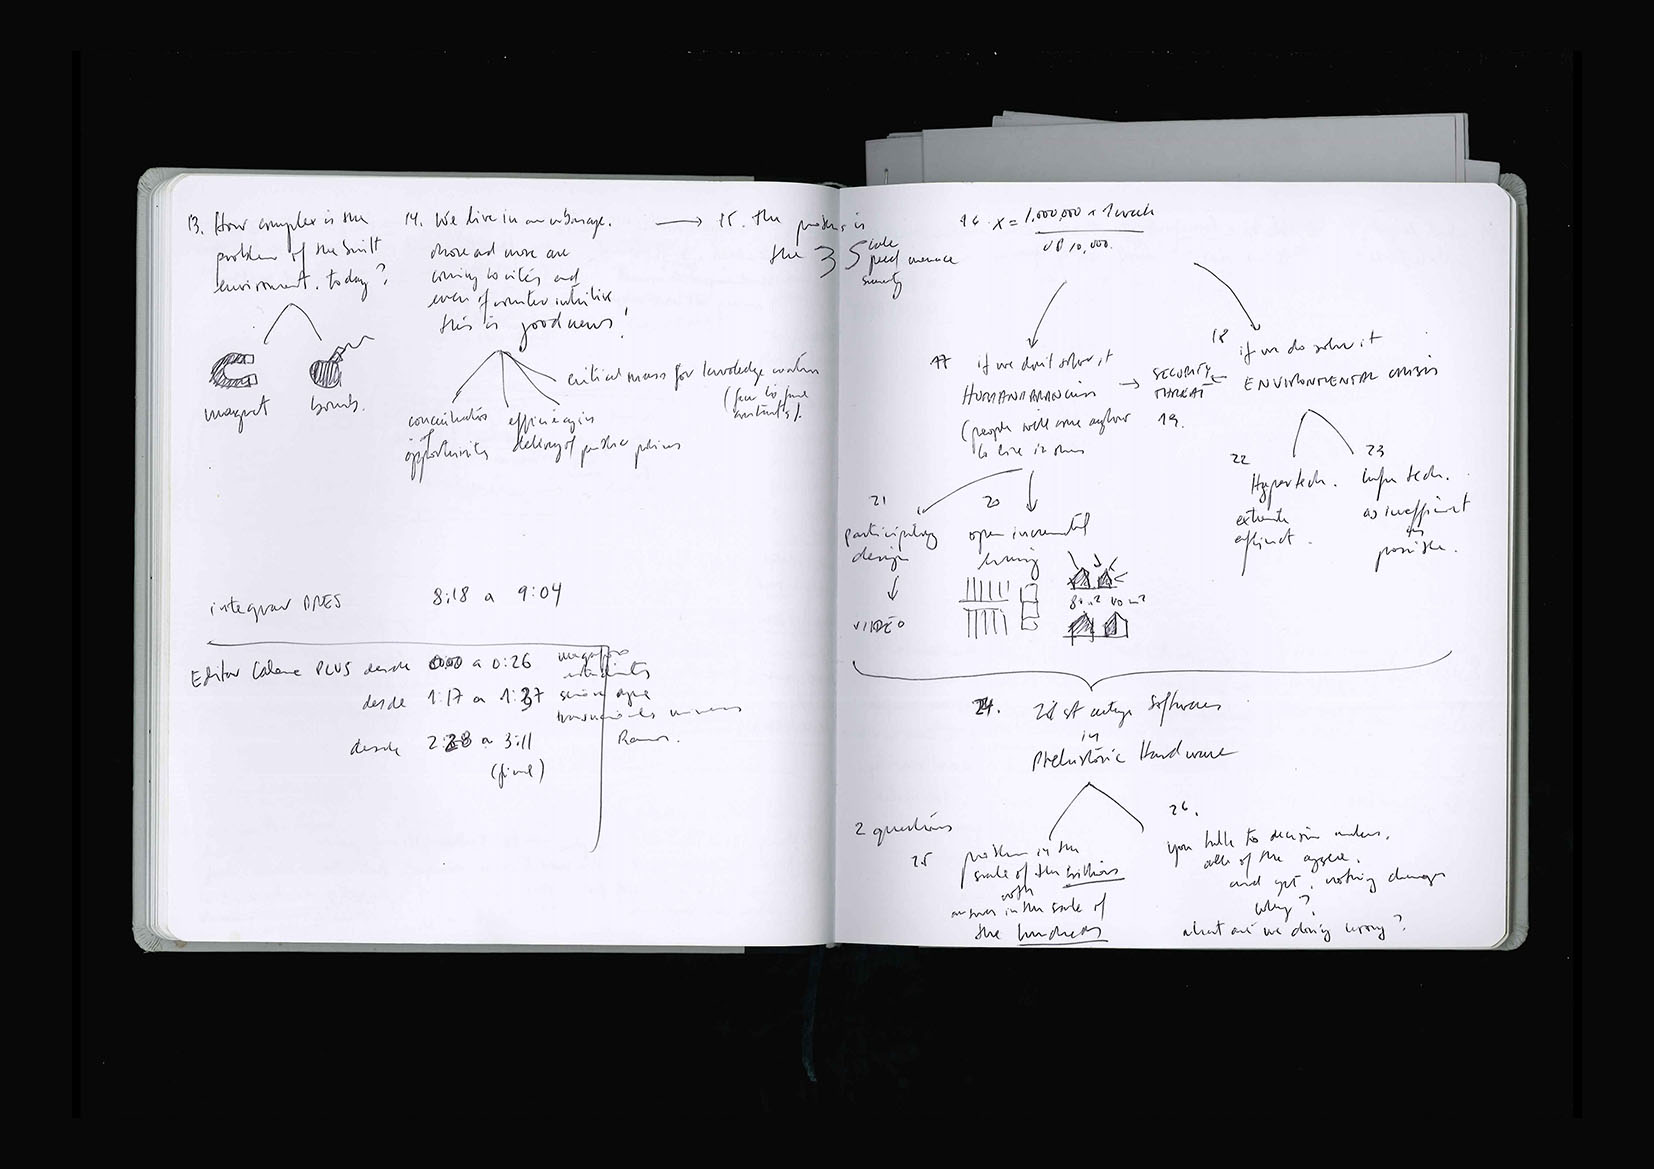 13. How complex is the
problem of the built
environment. today?
magnet
bomb.
14. We live in an urban age.
more and more are
coming to cities and
even if counter intuitive
this is good news!
concentration
of
opportunities
efficiency in
delivery of public policies
critical mass for knowledge creation
(face to face
contacts).
15. the problem is
the 3 S
scale
speed menace
scarcity
integrar
8:18 a 9:04
Editor PLUS desde 0:00 a 0:26
desde 1:17 a 1:37
desde 2:28 a 3:11
(final)
16. X = 1.000.000 x 1 week
U$ 10,000.
17 if we don't solve it
HUMANITARIAN CRISIS
(people will come anyhow
to live in slums
SECURITY
THREAT
19.
18 if we do solve it
ENVIRONMENTAL CRISIS
21
participatory
design
VIDEO
20
open incremental
housing
80 m2 40 m2
22
Hypertech.
extreme
efficient.
23
infra tech.
as inefficient
as
possible.
24. 21st century Software
in
Prehistoric Hardware
2 questions
25 problem in the
scale of the billions
with
answer in the scale of
the hundreds
26.
you talk to decision makers.
all of them agree.
and yet, nothing changes
why?
what are we doing wrong?